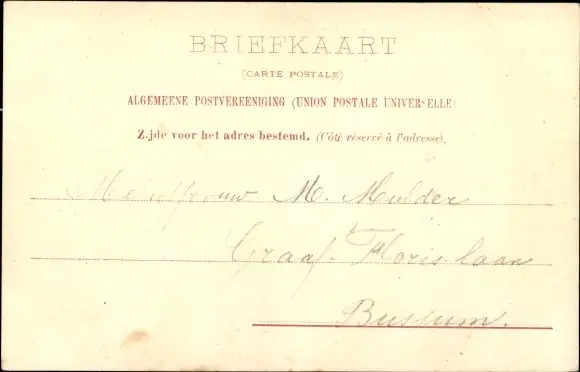 BRIEFKAART
(CARTE POSTALE)
ALGEMEENE POSTVEREENIGING (UNION POSTALE UNIVERSELLE)
Zijde voor het adres bestemd. (Côté réservé à l'adresse).
Mejuffrouw M. Mulder
Graaf Florislaan
Bussum.